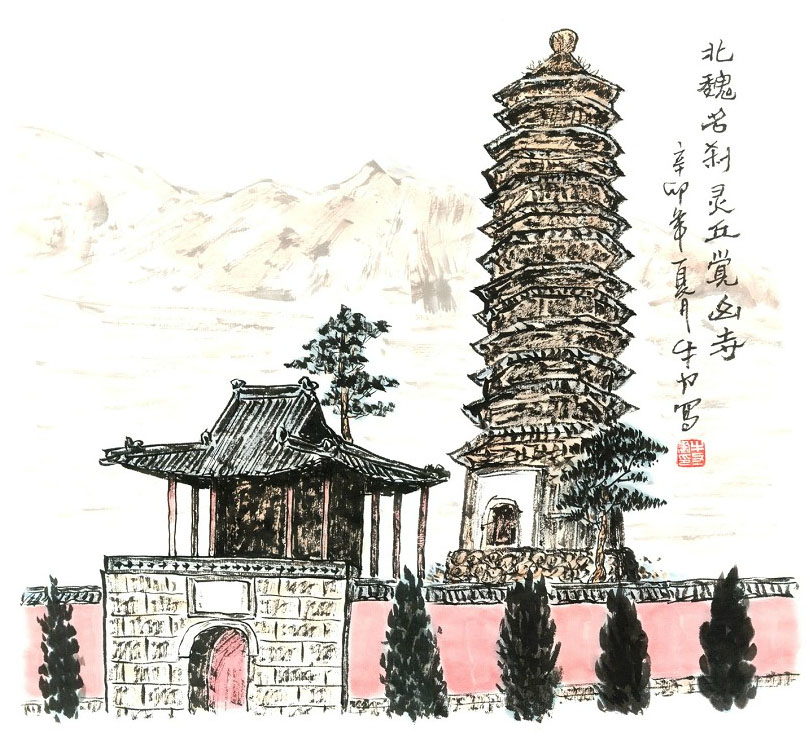 北魏名刹灵丘觉山寺
辛卯年夏月牛力写